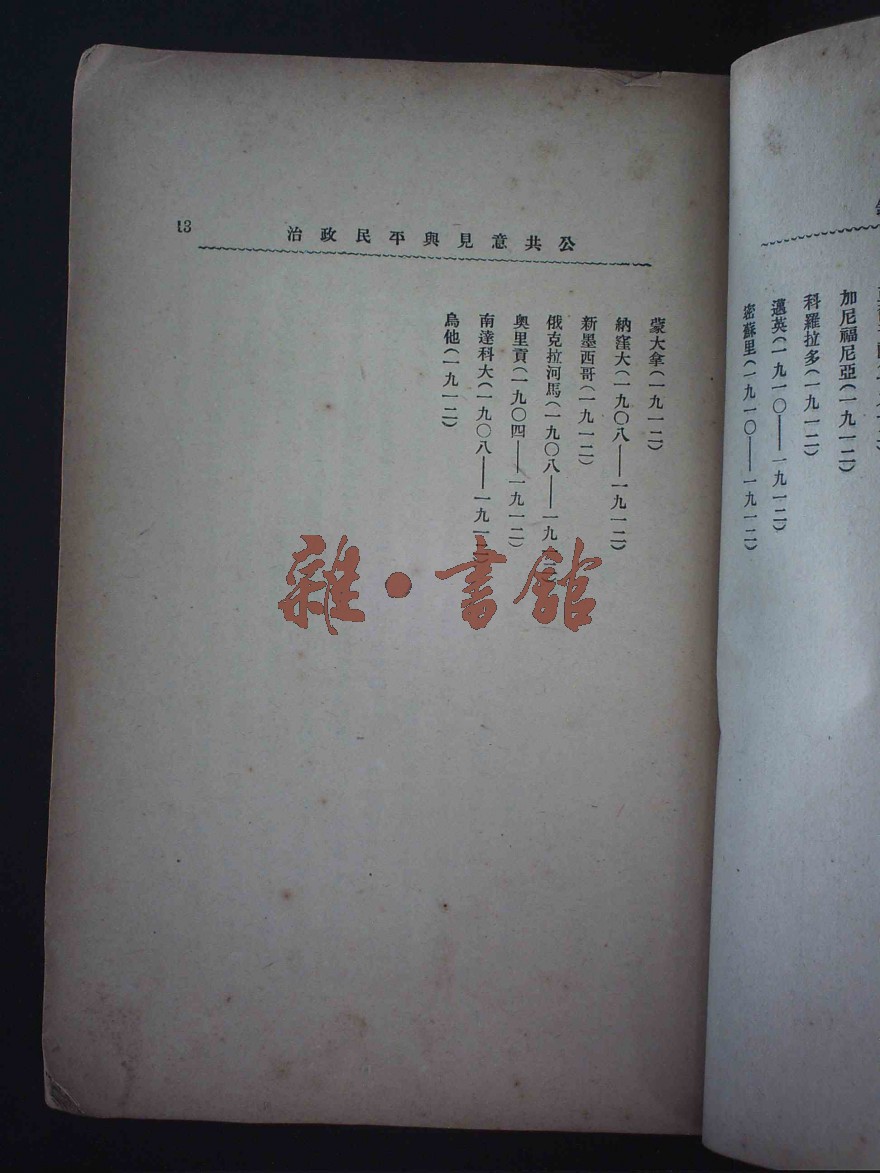 公共意見與平民政治
13
蒙大拿(一九一二)
納窪大(一九〇八——一九一二)
新墨西哥(一九一二)
俄克拉河馬(一九〇八——一九一二)
奥里貢(一九〇四——一九一二)
南達科大(一九〇八——一九一二)
烏他(一九一二)
加尼福尼亞(一九一二)
科羅拉多(一九一二)
邁英(一九一〇——一九一二)
密蘇里(一九一〇——一九一二)
雜·書館